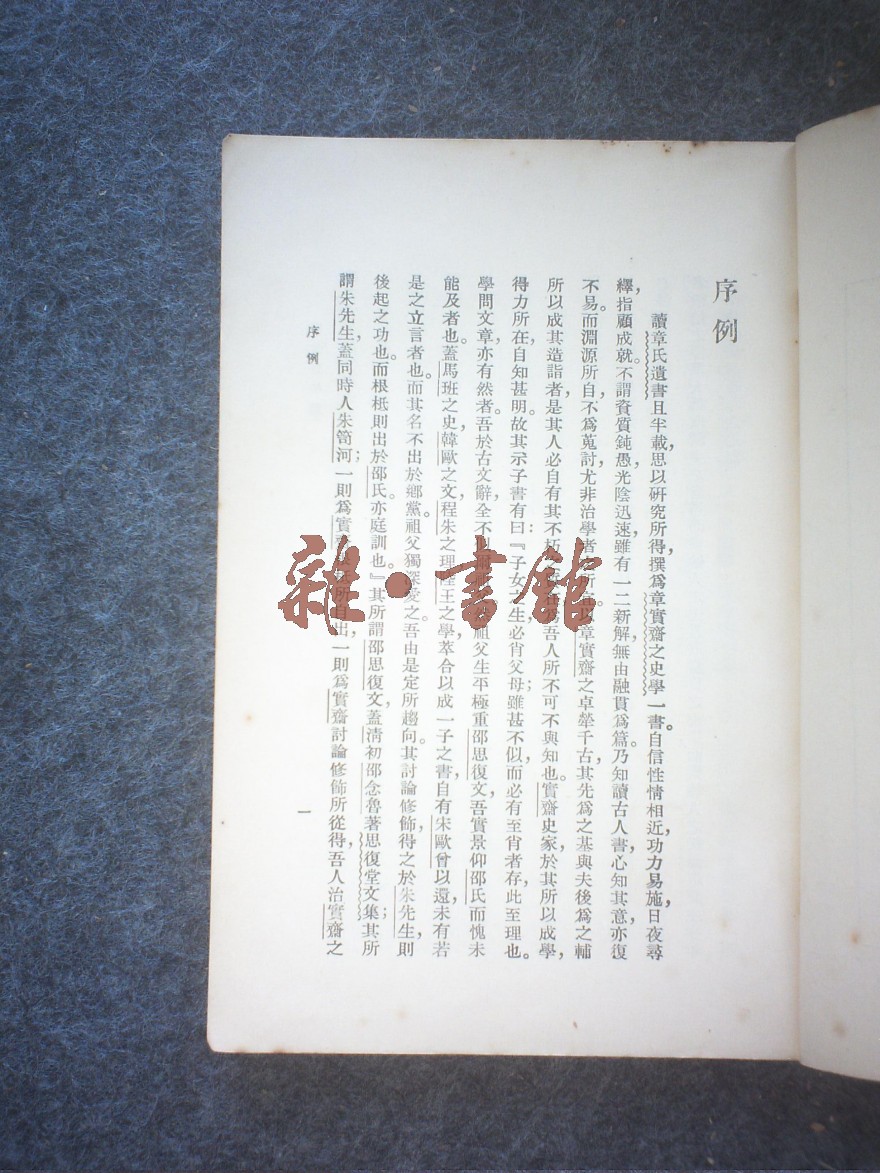 序例
讀章氏遺書且半載,思以研究所得,撰爲章實齋之史學一書。自信性情相近,功力易施,日夜尋
繹,指顧成就。不謂資質鈍愚,光陰迅速,雖有一二新解,無由融貫爲篇。乃知讀古人書,心知其意,亦復
不易。而淵源所自,不爲蒐討,尤非治學者之所宜。以章實齋之卓犖千古,其先爲之基與夫後爲之輔
所以成其造詣者,是其人必自有其不朽 吾人所不可不與知也。實齋史家,於其所以成學,
得力所在,自知甚明。故其示子書有曰:『子女之生,必肖父母;雖甚不似,而必有至肖者存,此至理也。
學問文章,亦有然者。吾於古文辭,全不 祖父生平極重邵思復文,吾實景仰邵氏而愧未
能及者也。蓋馬班之史,韓歐之文,程朱之理,陸王之學,萃合以成一子之書,自有宋歐曾以還,未有若
是之立言者也。而其名不出於鄉黨,祖父獨深愛之,吾由是定所趨向。其討論修飾,得之於朱先生,則
後起之功也。而根柢則出於邵氏,亦庭訓也。』其所謂邵思復文,蓋清初邵念魯著思復堂文集;其所
謂朱先生,蓋同時人朱筍河;一則爲實 所自出,一則爲實齋討論修飾所從得,吾人治實齋之
序例
一
雜·書館